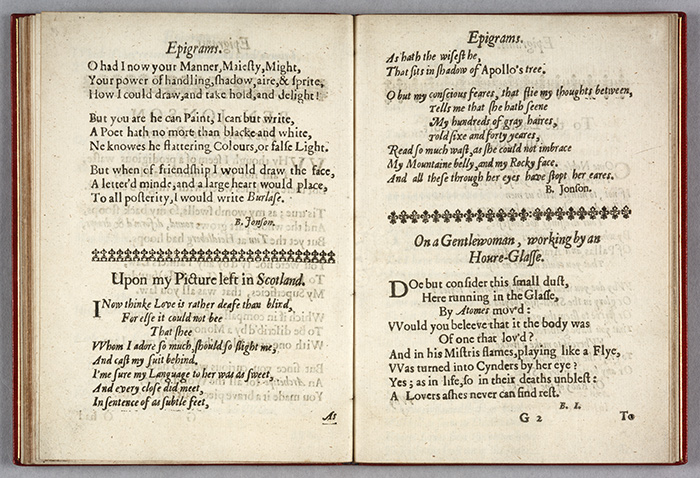 Epigrams.
O had I now your Manner, Maiesty, Might,
Your power of handling, shadow, aire, & sprite,
How I could draw, and take hold, and delight!
But you are he can Paint, I can but write,
A Poet hath no more than blacke and white,
Ne knowes he flattering Colours, or false Light.
But when of friendship I would draw the face,
A letter'd minde, and a large heart would place,
To all posterity, I would write Burlase.
B. Jonson.
Upon my Picture left in Scotland.
I Now thinke Love it rather deafe than blind,
For else it could not bee
That shee
VVhom I adore so much, should so slight me,
And cast my suit behind,
I'me sure my Language to her was as sweet,
And every close did meet,
In sentence of as subtle feet,
As
Epigrams.
As hath the wisest he,
That sits in shadow of Apollo's tree.
O but my conscious feares, that flie my thoughts between,
Tells me that she hath seene
My hundreds of gray haires,
Told six and forty yeares,
Read so much wast, as she could not imbrace
My Mountaine belly, and my Rocky face.
And all these through her eyes have stopt her eares.
B. Jonson.
On a Gentlewoman, working by an
Houre-Glasse.
DOe but consider this small dust,
Here running in the Glasse,
By Atomes mov'd:
VVould you beleeve that it the body was
Of one that lov'd?
And in his Mistris flames, playing like a Flye,
VVas turned into Cynders by her eye?
Yes; as in life, so in their deaths unblest:
A Lovers ashes never can find rest.
B. I.
G 2
To